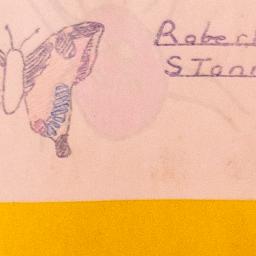 Robert
STan